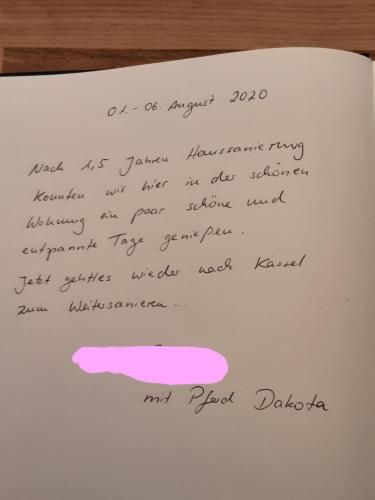 01. - 06. August 2020
Nach 1,5 Jahren Haussanierung
konnten wir hier in der schönen
Wohnung ein paar schöne und
entspannte Tage genießen.
Jetzt geht es wieder nach Kassel
zum Weitersanieren...
mit Pferd Dakota